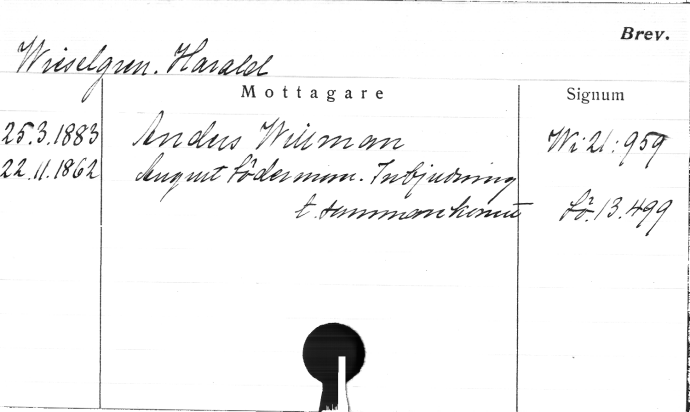 Brev.
Wieselgren. Harald
Mottagare Signum
25.3.1883 Anders Willman Wi 21:959
22.11.1862 August Söderman. Inbjudning
t. sammankomst Sö. 13.499